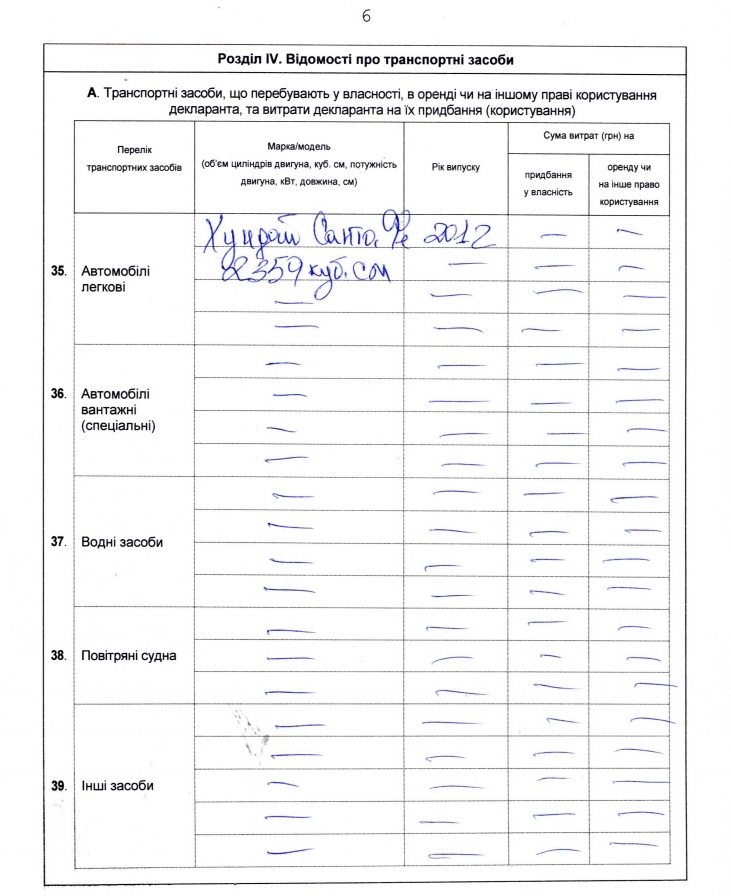 6
Розділ IV. Відомості про транспортні засоби
А. Транспортні засоби, що перебувають у власності, в оренді чи на іншому праві користування
декларанта, та витрати декларанта на їх придбання (користування)
Перелік
транспортних засобів
Марка/модель
(об'єм циліндрів двигуна, куб. см, потужність
двигуна, кВт, довжина, см)
Рік випуску
Сума витрат (грн) на
придбання
у власність
оренду чи
на інше право
користування
35. Автомобілі
легкові
Хундай Санта Фе 2012
2359 куб. см
36. Автомобілі
вантажні
(спеціальні)
37. Водні засоби
38. Повітряні судна
39. Інші засоби